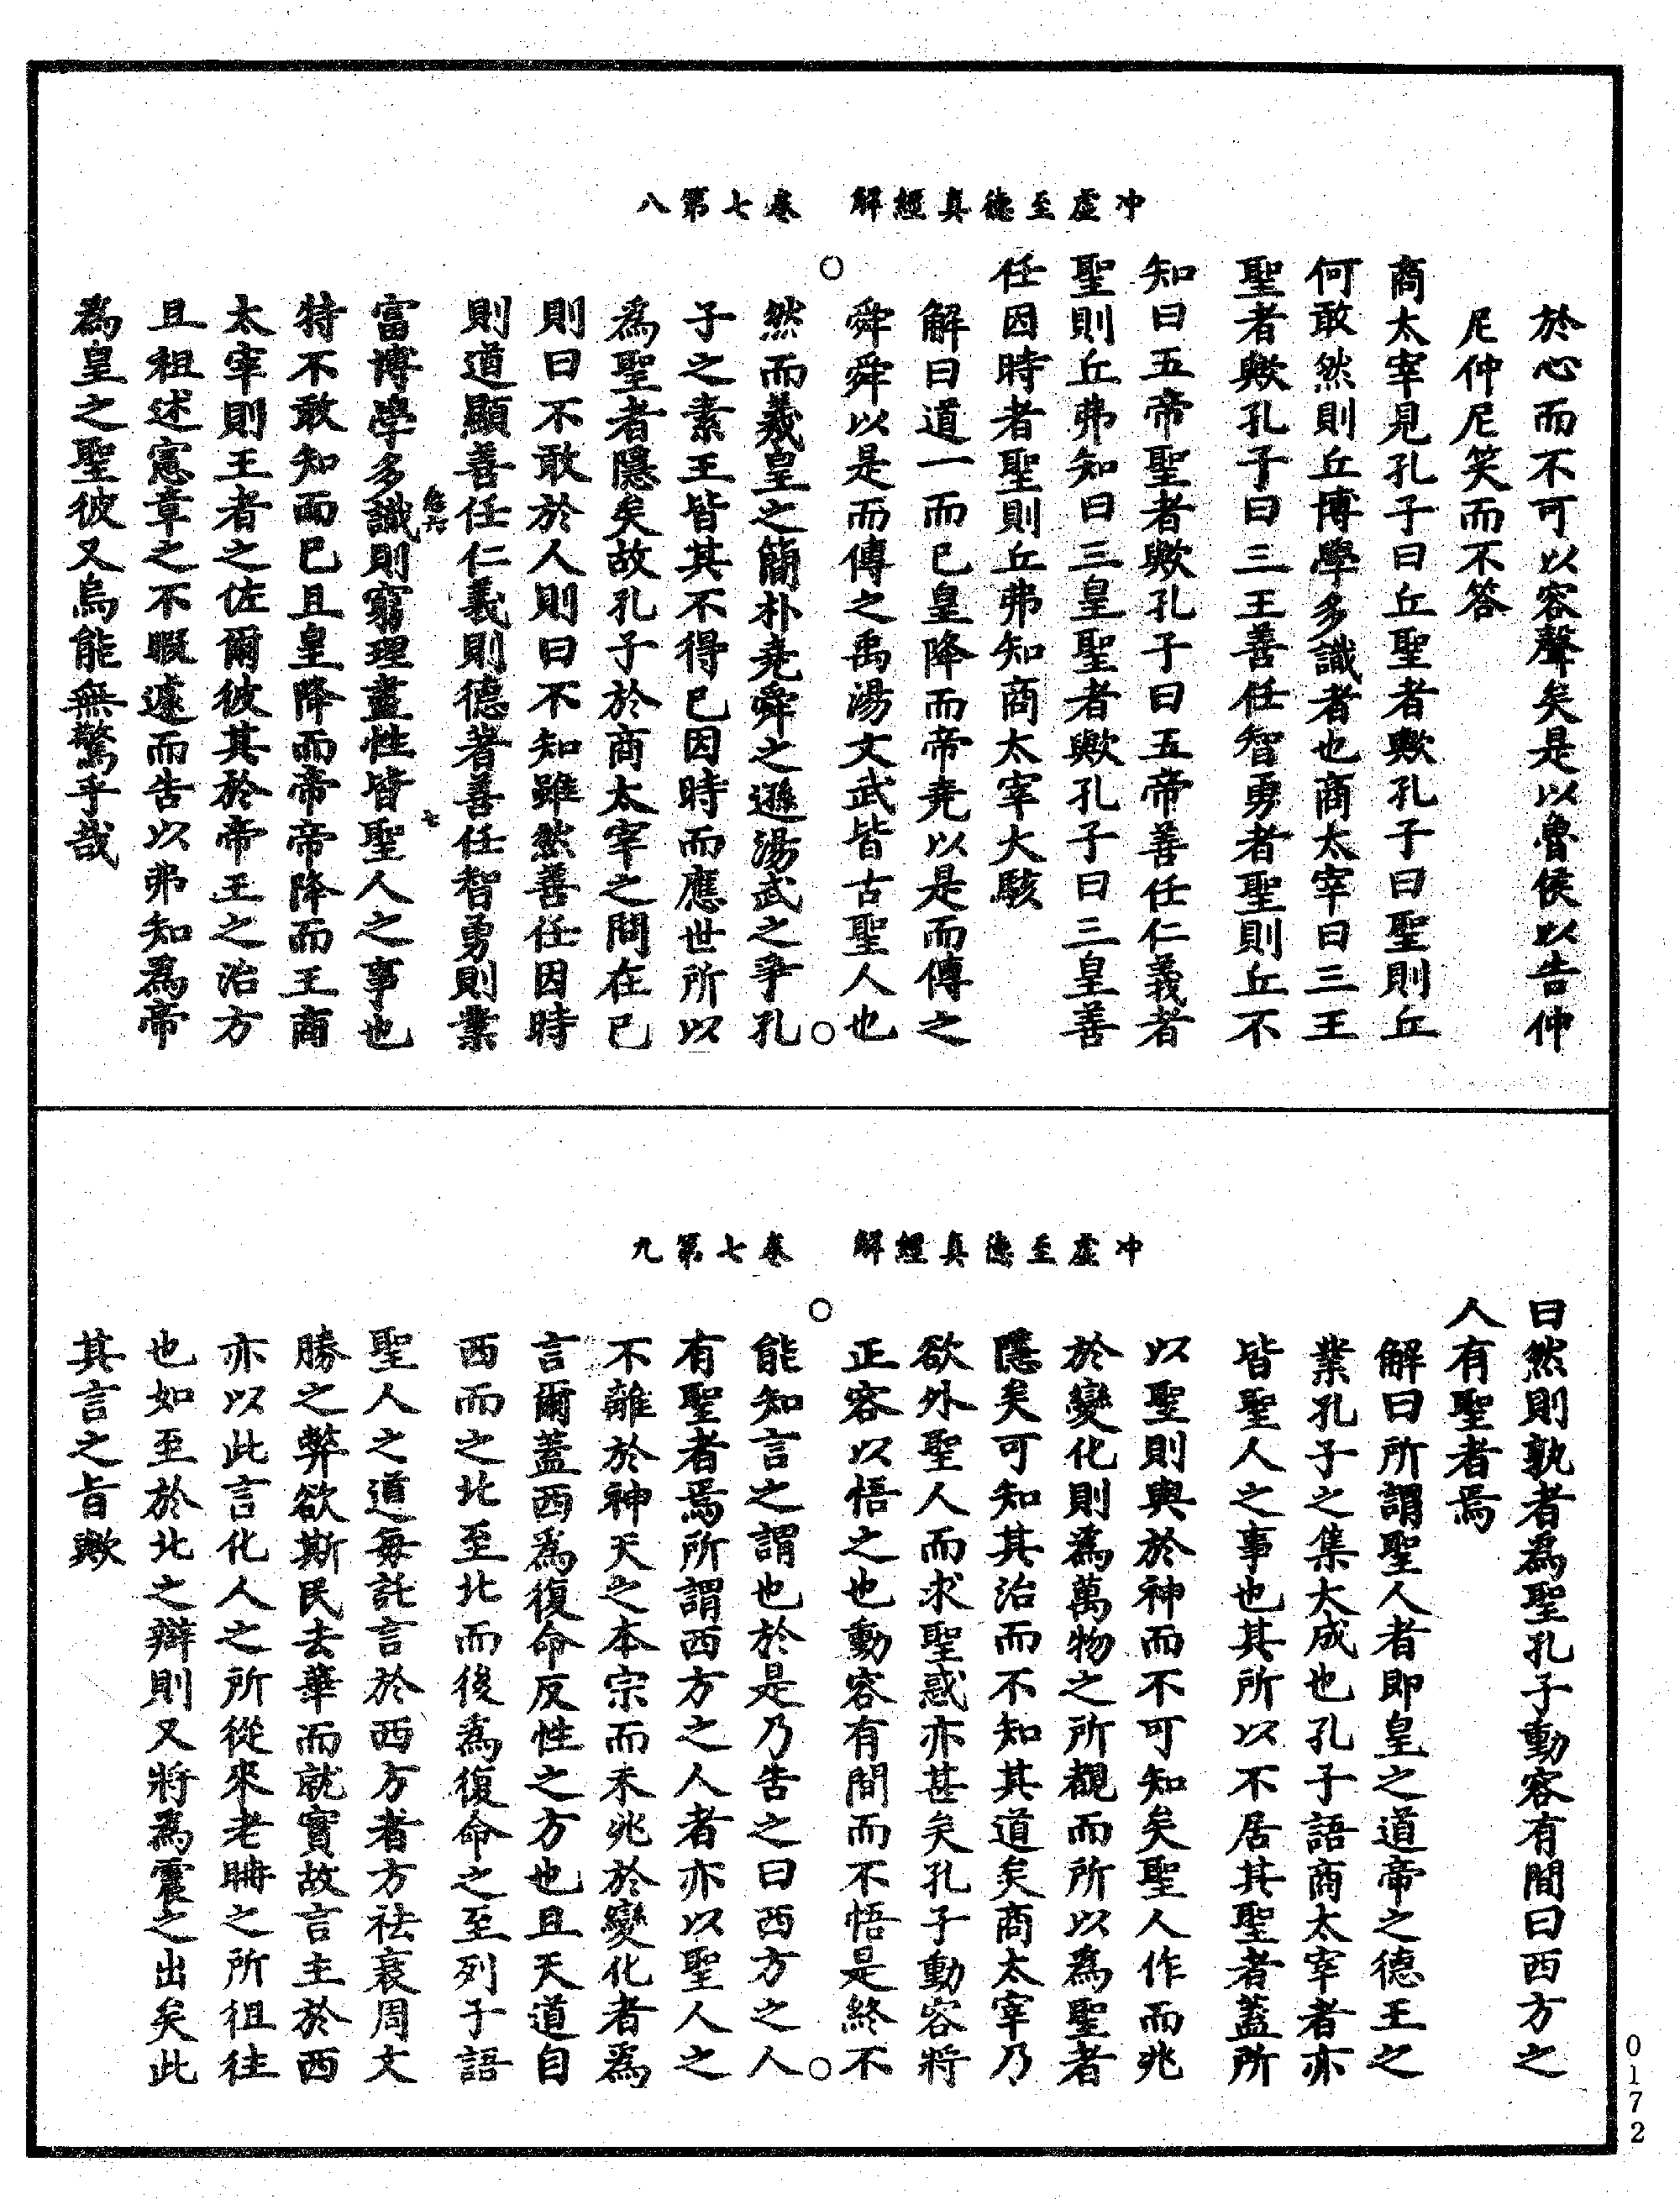 冲虛至德真經解　卷七第八
於心而不可以容聲矣是以魯侯以告仲
尼仲尼笑而不答
商太宰見孔子曰丘聖者歟孔子曰聖則丘
何敢然則丘博學多識者也商太宰曰三王
聖者歟孔子曰三王善任智勇者聖則丘不
知曰五帝聖者歟孔子曰五帝善任仁義者
聖則丘弗知曰三皇聖者歟孔子曰三皇善
任因時者聖則丘弗知商太宰大駭
解曰道一而已皇降而帝堯以是而傳之
舜舜以是而傳之禹湯文武皆古聖人也
然而羲皇之簡朴堯舜之遜湯武之爭孔
子之素王皆其不得已因時而應世所以
為聖者隱矣故孔子於商太宰之問在已
則曰不敢於人則曰不知雖然善任因時
則道顯善任仁義則德著善任智勇則業
富博學多識則窮理盡性皆聖人之事也
特不敢知而已且皇降而帝帝降而王商
太宰則王者之佐爾彼其於帝王之治方
且祖述憲章之不暇遽而告以弗知為帝
為皇之聖彼又烏能無驚乎哉
冲虛至德真經解　卷七第九
曰然則孰者為聖孔子動容有間曰西方之
人有聖者焉
解曰所謂聖人者即皇之道帝之德王之
業孔子之集大成也孔子語商太宰者亦
皆聖人之事也其所以不居其聖者蓋所
以聖則與於神而不可知矣聖人作而兆
於變化則為萬物之所覩而所以為聖者
隱矣可知其治而不知其道矣商太宰乃
欲外聖人而求聖惑亦甚矣孔子動容將
正容以悟之也動容有間而不悟是終不
能知言之謂也於是乃告之曰西方之人
有聖者焉所謂西方之人者亦以聖人之
不離於神天之本宗而未兆於變化者為
言爾蓋西為復命反性之方也且天道自
西而之北至北而後為復命之至列子語
聖人之道每託言於西方者方祛衰周文
勝之弊欲斯民去華而就實故言主於西
亦以此言化人之所從來老聃之所徂往
也如至於北之辯則又將為震之出矣此
其言之旨歟
0172